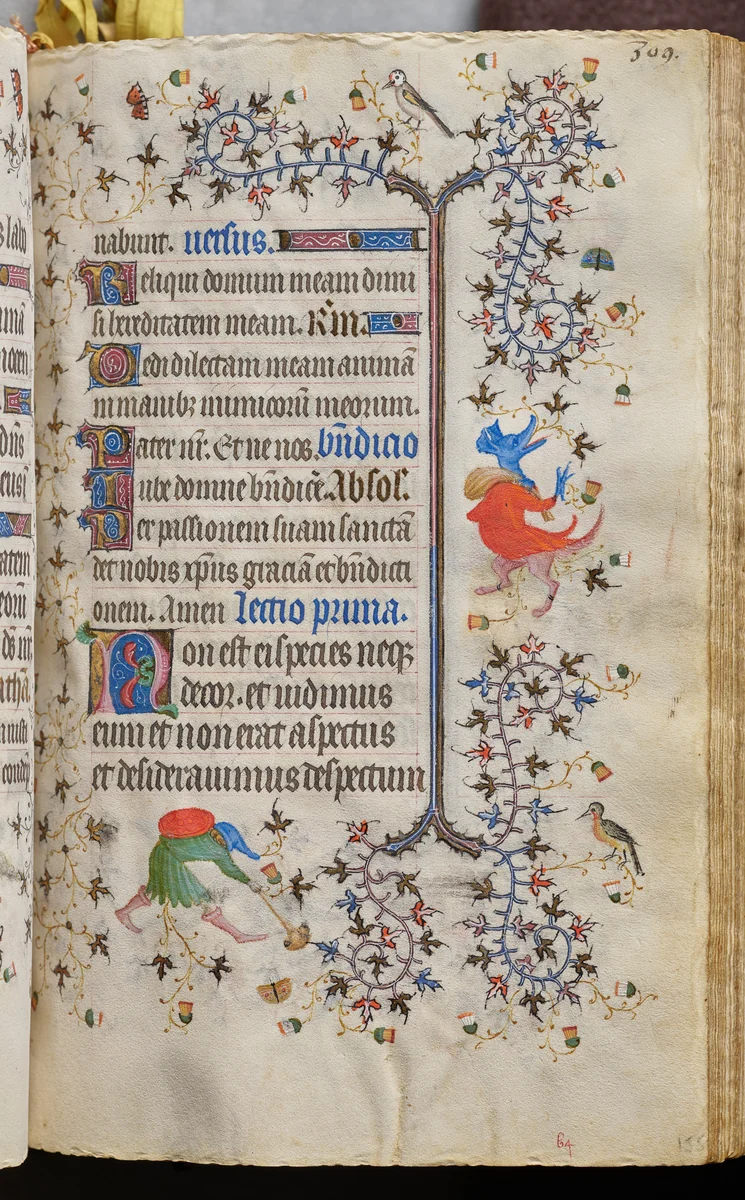 309.
nabunt. uersus.
Reliqui domum meam dimi
si hereditatem meam. R'm.
Dedi dilectam meam animā
in manibꝫ inimicorū meorum.
Pater nr̄. Et ne nos. bn̄dicio
Iube domne bn̄dicē. Absol'.
Per passionem suam sanctā
det nobis xp̄us graciā et bn̄dicti
onem. Amen Lectio prima.
Non est ei species neqꝫ
decor. et uidimus
eum et non erat aspectus
et desiderauimus despectum
64